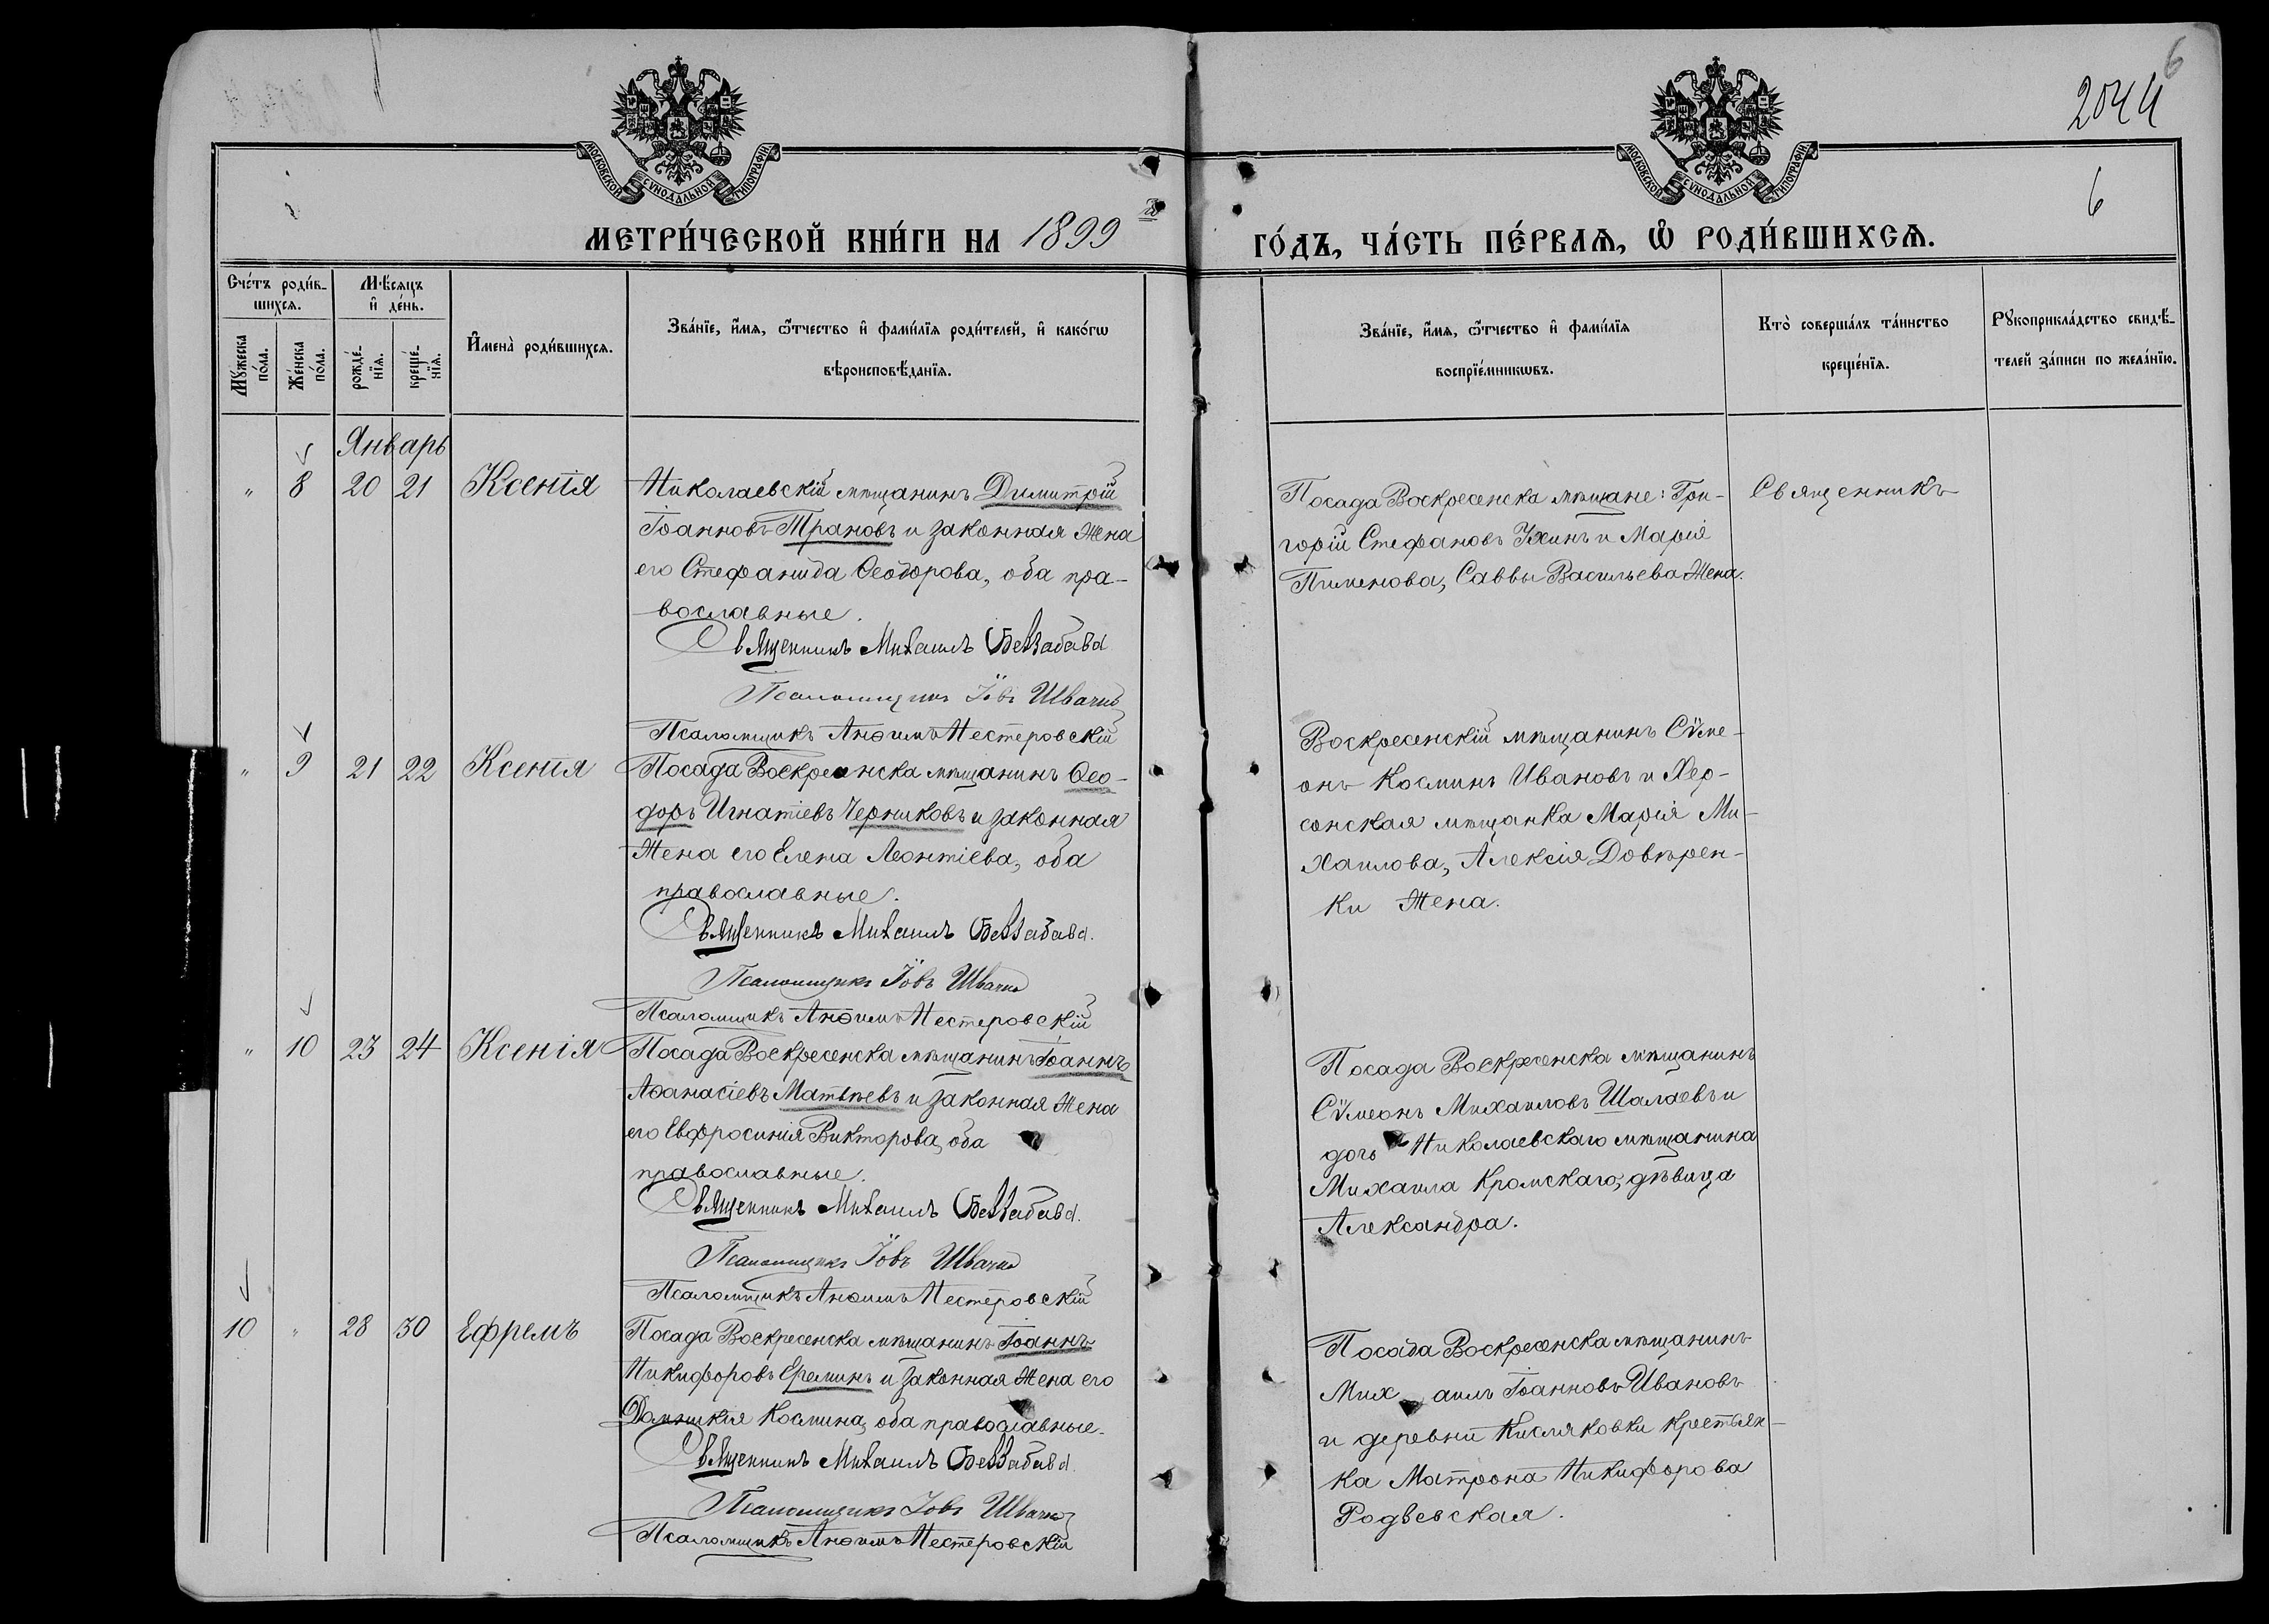 6
2044
МОСКОВСКОЙ СѴНОДАЛЬНОЙ ТИПОГРАФІИ
МОСКОВСКОЙ СѴНОДАЛЬНОЙ ТИПОГРАФІИ
6
МЕТРИ́ЧЕСКОЙ КНИ́ГИ НА 1899
ГО́ДЪ, ЧА́СТЬ ПЕ́РВАѦ, Ѽ РОДИ́ВШИХСѦ.
Сче́тъ роди́в-
шихсѧ.
Мꙋ́жеска
по́ла.
Же́нска
по́ла.
Мѣ́сѧцъ
и҆ де́нь.
рожде́-
нїѧ.
креще́-
нїѧ.
И҆мена̀ роди́вшихсѧ.
Зва́нїе, и҆́мѧ, ѻ҆́тчество и҆ фами́лїѧ роди́телей, и҆ како́гѡ
вѣроисповѣ́данїѧ.
Зва́нїе, и҆́мѧ, ѻ҆́тчество и҆ фами́лїѧ
воспрїе́мникѡвъ.
Кто̀ соверша́лъ та́инство
креще́нїѧ.
Рꙋкоприкла́дство свидѣ́-
телей за́писи по жела́нїю.
Январь
" 8 20 21 Ксенія
Николаевскій мѣщанинъ Димитрій
Іоанновъ Трановъ и законная жена
его Стефанида Ѳеодорова, оба пра-
вославные.
Священникъ Михаилъ Беззабава
Псаломщикъ Іовъ Швачко
Псаломщикъ Анѳимъ Нестеровскій
Посада Воскресенска мѣщане: Гри-
горій Стефановъ Ухинъ и Марія
Пименова, Саввы Васильева жена.
Священникъ
" 9 21 22 Ксенія
Посада Воскресенска мѣщанинъ Ѳео-
доръ Игнатіевъ Черниковъ и законная
жена его Елена Леонтіева, оба
православные.
Священникъ Михаилъ Беззабава.
Псаломщикъ Іовъ Швачко
Псаломщикъ Анѳимъ Нестеровскій
Воскресенскій мѣщанинъ Сѵме-
онъ Косминъ Ивановъ и Хер-
сонская мѣщанка Марія Ми-
хаилова, Алексія Довѣрен-
ки жена.
" 10 23 24 Ксенія
Посада Воскресенска мѣщанинъ Іоаннъ
Аѳанасіевъ Матвѣевъ и законная жена
его Евфросинія Викторова, оба
православные.
Священникъ Михаилъ Беззабава.
Псаломщикъ Іовъ Швачко
Псаломщикъ Анѳимъ Нестеровскій
Посада Воскресенска мѣщанинъ
Сѵмеонъ Михаиловъ Шалаевъ и
дочь Николаевскаго мѣщанина
Михаила Кромскаго, дѣвица
Александра.
10 " 28 30 Ефремъ
Посада Воскресенска мѣщанинъ Іоаннъ
Никифоровъ Ереминъ и законная жена его
Домникія Космина, оба православные.
Священникъ Михаилъ Беззабава.
Псаломщикъ Іовъ Швачко
Псаломщикъ Анѳимъ Нестеровскій
Посада Воскресенска мѣщанинъ
Михаилъ Іоанновъ Ивановъ
и деревни Кисляковки крестьян-
ка Матрона Никифорова
Родвевская.